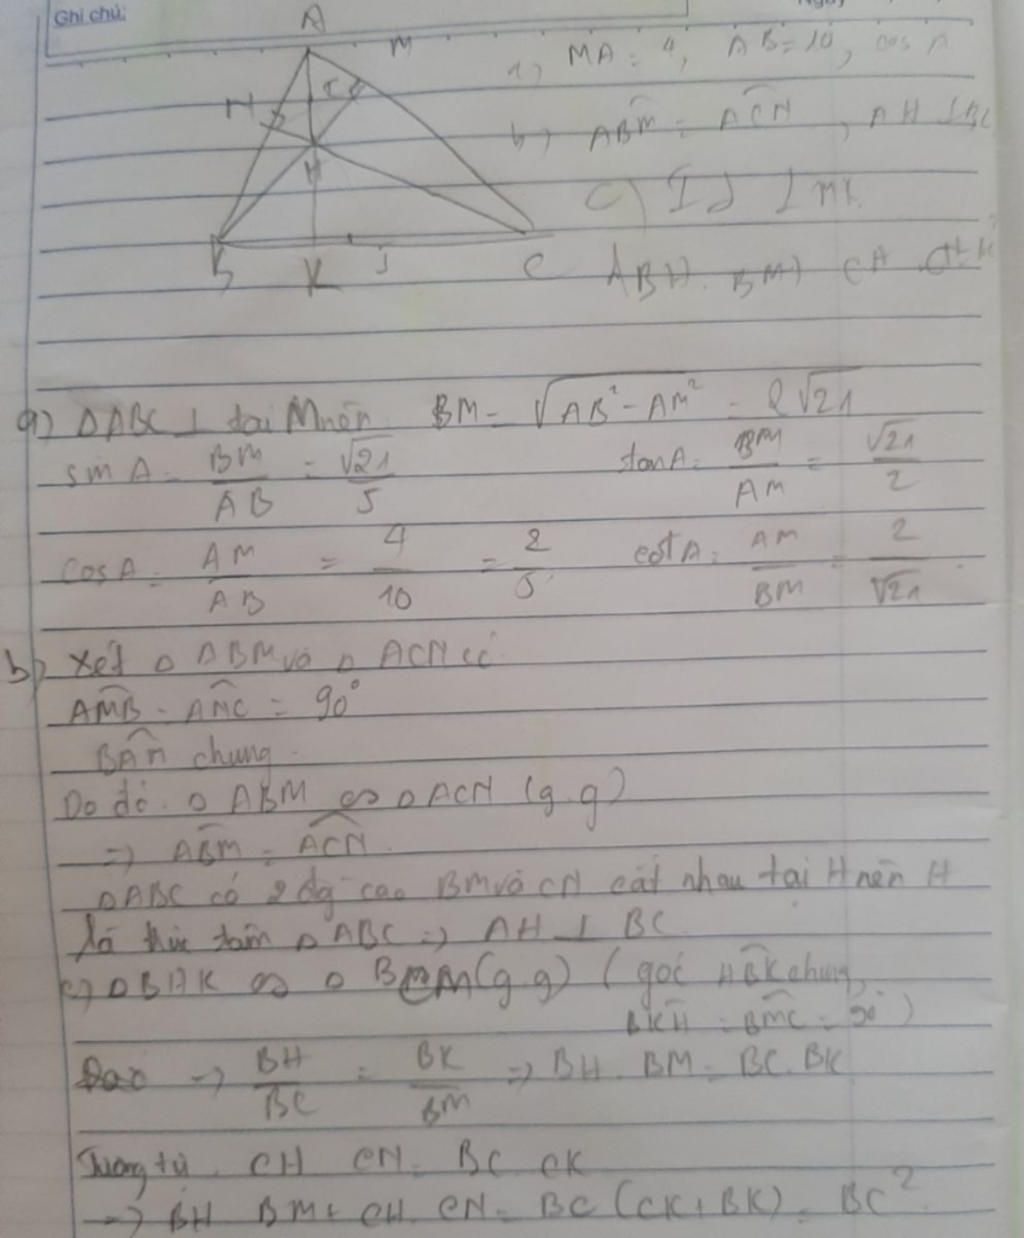 Ghi chú:
A
M
N
I
H
B K J C
1) MA = 4, AB = 10, cos A
b) ABM = ACN, AH ⊥ BC
C) IJ ⊥ MK
BH. BM) CH
a) Δ ABC ⊥ tại M nên BM = √AB² - AM² = 2√21
sin A = BM/AB = √21/5 tan A = BM/AM = √21/2
cos A = AM/AB = 4/10 = 2/5 cot A = AM/BM = 2/√21
b) Xét Δ ABM và Δ ACN có
AMB = ANC = 90°
BAM chung
Do đó Δ ABM ∽ Δ ACN (g.g)
=> ABM = ACN
Δ ABC có 2 đg cao BM và CN cắt nhau tại H nên H
là trực tâm Δ ABC => AH ⊥ BC
c) Δ BHK ∽ Δ BCM (g.g) (góc HBK chung,
BKH = BMC = 90°)
=> BH/BC = BK/BM => BH. BM = BC. BK
Tương tự CH CN = BC CK
=> BH BM + CH. CN = BC (CK + BK) = BC²